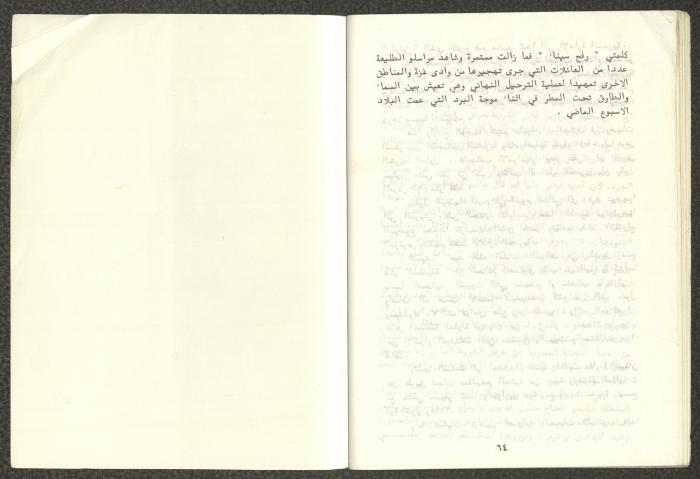 كلمتي " رفح سيناء " فما زالت مستمرة وشاهد مراسلو الطليعة
عددا من العائلات التي جرى تهجيرها من وادى غزة والمناطق
الاخرى تمهيدا لعملية الترحيل النهائي وهي تعيش بين السماء
والطارق تحت المطر في اثناء موجة البرد التي عمت البلاد
الاسبوع الماضي .
٦٤